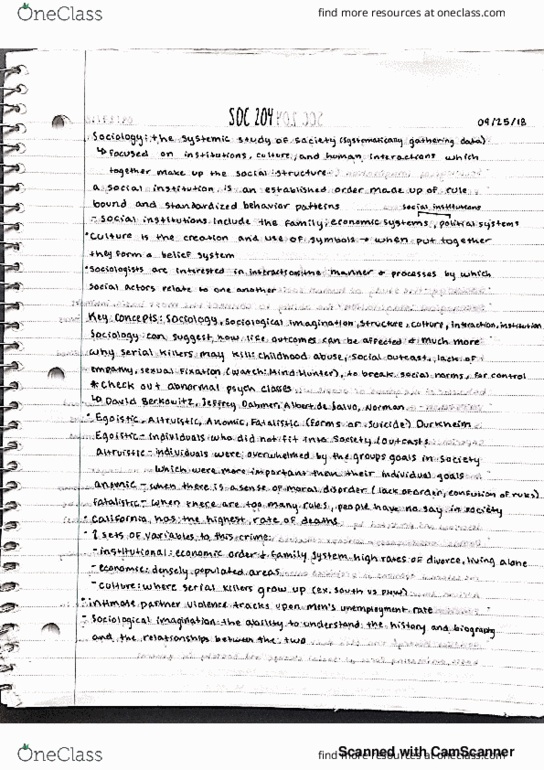 OneClass
find more resources at oneclass.com
SOC 204
09/25/18
Sociology: the systemic study of society (systematically gathering data)
↳ focused on institutions, culture, and human interactions which
together make up the social structure
a social institution is an established order made up of rule
bound and standardized behavior patterns
social institutions
- social institutions include the family, economic systems, political systems
• Culture is the creation and use of symbols → when put together
they form a belief system
• sociologists are interested in interactions: the manner & processes by which
social actors relate to one another
Key Concepts: Sociology, Sociological imagination, structure, culture, interaction, institution
Sociology can suggest how life outcomes can be affected & much more
Why serial killers may kill: childhood abuse, social outcast, lack of
empathy, sexual fixation (watch: Mind Hunter), to break social norms, for control
* Check out abnormal psych classes
↳ David Berkowitz, Jeffrey Dahmer, Albert de Salvo, Norman
• Egoistic, Altruistic, Anomic, Fatalistic (forms of suicide) Durkheim
Egoistic - individuals who did not fit into society / outcasts
altruistic - individuals were overwhelmed by the groups goals in society
which were more important than their individual goals
anomic - when there is a sense of moral disorder (lack of order, confusion of rules)
fatalistic - when there are too many rules, people have no say in society
• California has the highest rate of deaths
• 2 sets of variables to this crime:
- institutional: economic order & family system high rates of divorce, living alone
- economic: densely populated areas
- culture: where serial killers grow up (ex. South vs PNW)
• intimate partner violence tracks upon men's unemployment rate
• Sociological imagination: the ability to understand the history and biography
and the relationships between the two
OneClass
find more resources at oneclass.com
Scanned with CamScanner